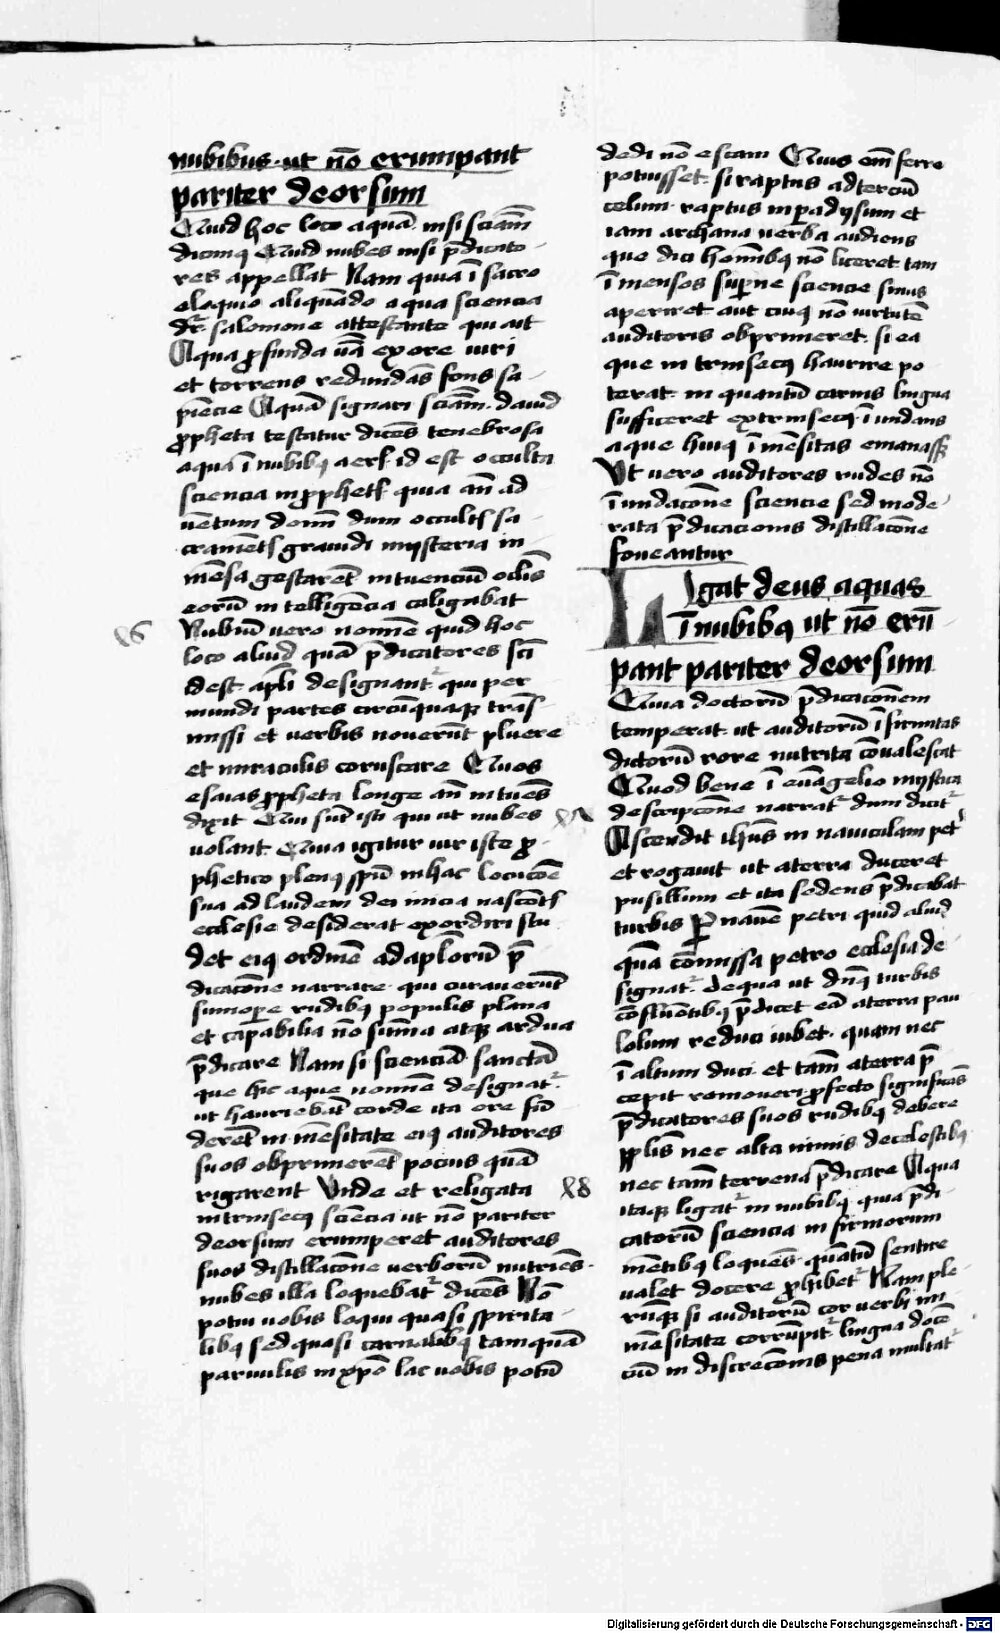 nubibus · ut nō erumpant
pariter deorsum
Quid hoc loco aquā nisi sciam̄
dicimꝰ Quid nubes nisi p̄dicato
res appellat Nam quia ī sacro
eloquio aliquādo aqua sciencia
dr̄ salomone attestante qui ait
Aqua ꝓfunda v̄ba ex ore viri
et torrens redundās fons sa
piēcie Aquā signari sciam̄ dauid
ꝓpheta testatur dicēs tenebrosa
aqua ī nubibꝰ aerꝭ id est occulta
sciencia in ꝓphetꝭ quia an̄ ad
uētum domī dum occultꝭ sa
cramētꝭ grauidi mysteria in
mēsa gestarēt intuenciū oclīs
eorū intelligēcia caligabat
Nubiū vero nomīe quid hoc
loco aliud quā p̄dicatores scī
idest apl̄i designant᷑ qui per
mundi partes circūquaqꝫ trāſ
missi et verbis nouerūt pluere
et miraculis coruscare Quos
esaias ꝓpheta longe an̄ intuēs
dixit Qui sūt isti qui ut nubes
volant Quia igitur vir iste ꝓ
phetico plenꝰ spū in hac locucōe
sua ad laudem dei inicia nascētꝭ
ecclesie desiderat exordiri stu
det eiꝰ ordinē ad apl̄orū p̄
dicacōne narrare qui curauerūt
sumoꝑe rudibꝰ populis plana
et capabilia nō sūma atqꝫ ardua
p̄dicare Nam si scienciā sanctā
que hic aque nomīe designat᷑
ut hauriebāt corde ita ore fū
derēt in mēsitate eiꝰ auditores
suos obprimerēt pocius quā
rigarent Vnde et religata
intrinsecꝰ sciēcia ut nō pariter
deorsum erumperet auditores
suos distillacōne verborū nutriēs
nubes illa loquebat᷑ dicēs Nō
potui vobis loqui quasi spirita
libꝰ sed quasi carnalibꝰ tamquā
paruulis in xp̄o lac vobis potū
dedi nō escam Quis em̄ ferre
potuisset si raptus ad terciū
celum raptus in ꝑadysum et
iam archana verba audiens
que dici homībꝰ nō liceret tam
īmensos suꝑne sciencie sinus
aperiret aut cuiꝰ nō virtutē
auditoris obprimeret si ea
que intrinsecꝰ haurire po
terat in quantū carnis lingua
sufficeret extrinsecꝰ īundans
aque huiꝰ īmēsitas emanasset
Vt vero auditores rudes nō
īundacōne sciencie sed mode
rata p̄dicacionis distillacōne
foueantur
Ligat deus aquas
ī nubibꝰ ut nō erū
pant pariter deorsum
Quia doctorū p̄dicacōnem
temperat ut auditorū īfirmitas
dictorū rore nutrita cōualescat
Quod bene ī euāgelio mystica
descripcōne narrat᷑ dum dicit᷑
Ascendit ihūs in nauiculam pet͛
et rogauit ut a terra duceret
pusillum et ita sedens p̄dicabat
turbis Per nauē petri quid aliud
quā cōmissa petro ecclesia de
signat᷑ de qua ut dn̄s turbis
cōfluētibꝰ p̄dicet eā a terra pau
lolum reduci iubet quam nec
ī altum duci et tam̄ a terra p̄
cepit remoueri ꝓfecto significās
p̄dicatores suos rudibꝰ debere
ppl̄is nec alta nimis de celestibꝰ
nec tam̄ terrena p̄dicare Aqua
itaqꝫ ligat᷑ in nubibꝰ quia p̄di
catorū sciencia infirmorum
mētibꝰ loquēs quātū sentire
valet docere ꝓhibet᷑ Nam ple
rūqꝫ si auditorū cor verbi in
mēsitate corrūpit᷑ lingua docē
ciū indiscrecōnis pena multat᷑
Digitalisierung gefördert durch die Deutsche Forschungsgemeinschaft - DFG